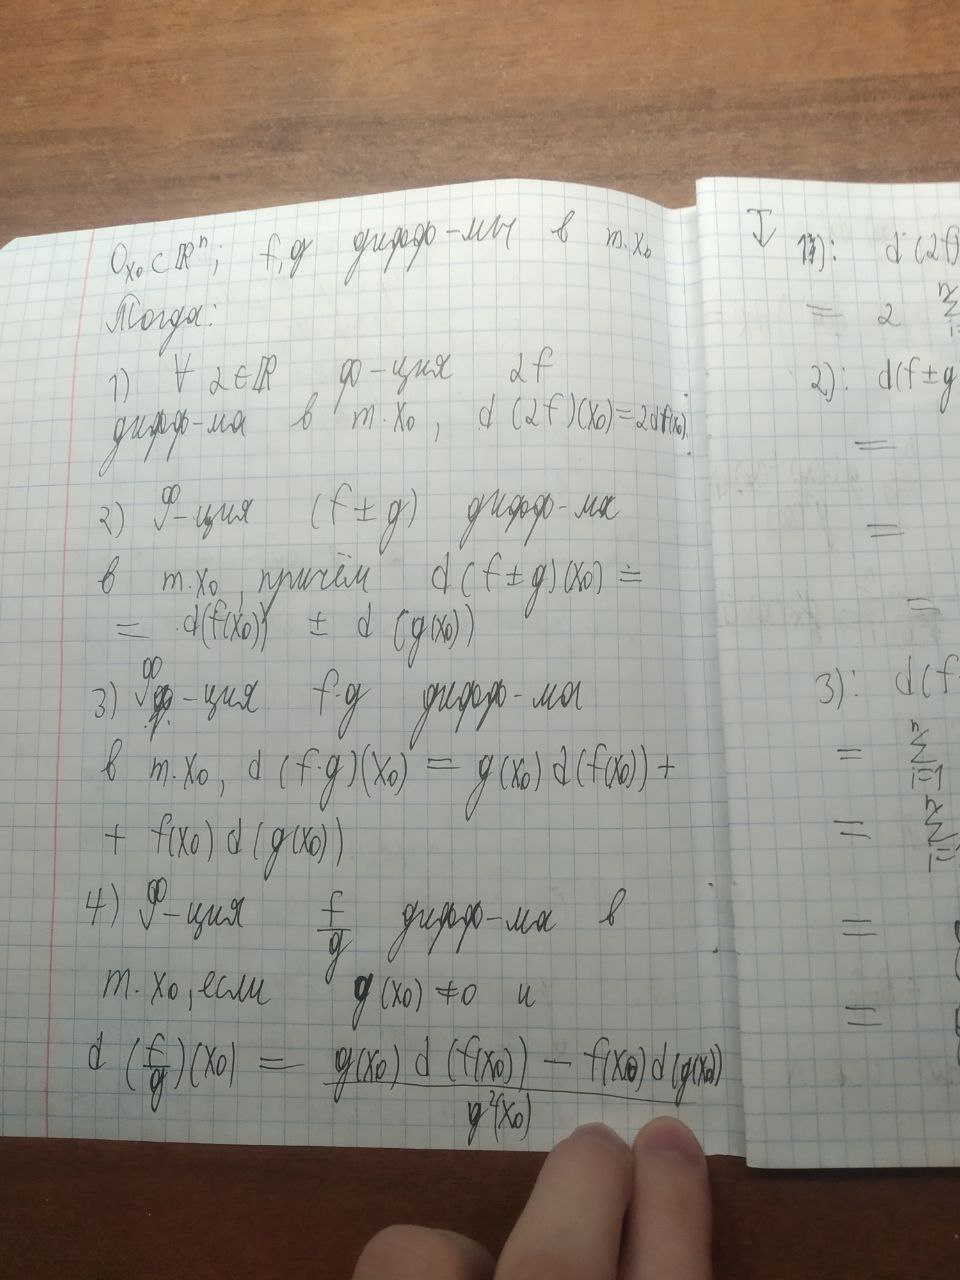 O_{x₀} ⊂ ℝⁿ; f, g дифф-мы в т. x₀
Тогда:
1) ∀ α ∈ ℝ ф-ция αf
дифф-ма в т. x₀, d(αf)(x₀) = αdf(x₀).
2) ф-ция (f ± g) дифф-ма
в т. x₀, причём d(f ± g)(x₀) =
= d(f(x₀)) ± d(g(x₀))
3) ф-ция f·g дифф-ма
в т. x₀, d(f·g)(x₀) = g(x₀) d(f(x₀)) +
+ f(x₀) d(g(x₀))
4) ф-ция f/g дифф-ма в
т. x₀, если g(x₀) ≠ 0 и
d(f/g)(x₀) = (g(x₀) d(f(x₀)) − f(x₀) d(g(x₀))) / g²(x₀)
1): d(αf)
= α Σ
2): d(f ± g
=
=
=
3): d(f
= Σ i=1
= Σ i=
=
=